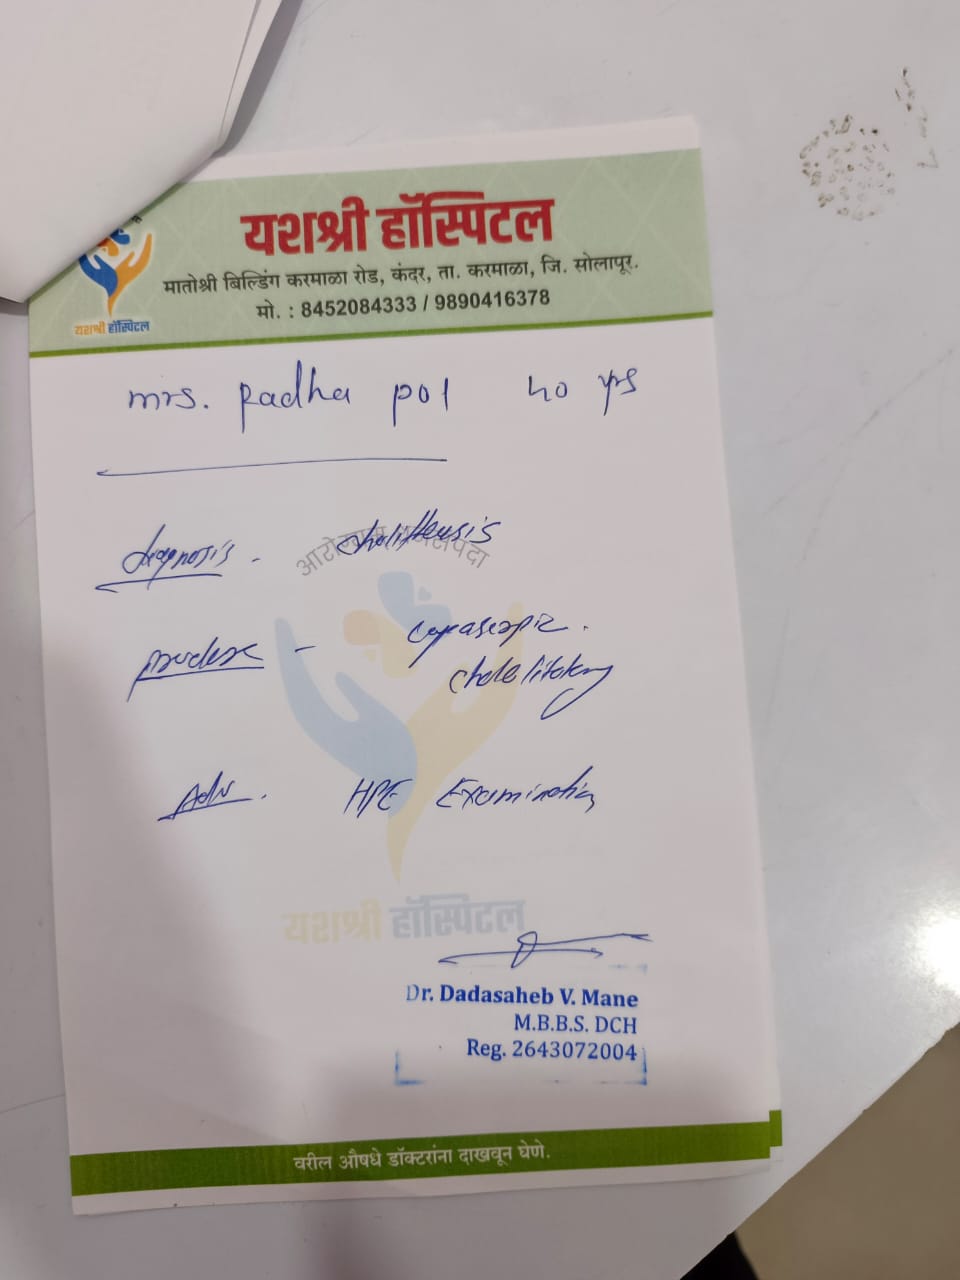 यशश्री हॉस्पिटल
मातोश्री बिल्डिंग करमाळा रोड, कंदर, ता. करमाळा, जि. सोलापूर.
मो. : 8452084333 / 9890416378
यशश्री हॉस्पिटल
mrs. Radha pol 40 yrs
diagnosis -
आरोग्यम् धनसंपदा
Adv. HPE Examination
यशश्री हॉस्पिटल
Dr. Dadasaheb V. Mane
M.B.B.S. DCH
Reg. 2643072004
वरील औषधे डॉक्टरांना दाखवून घेणे.